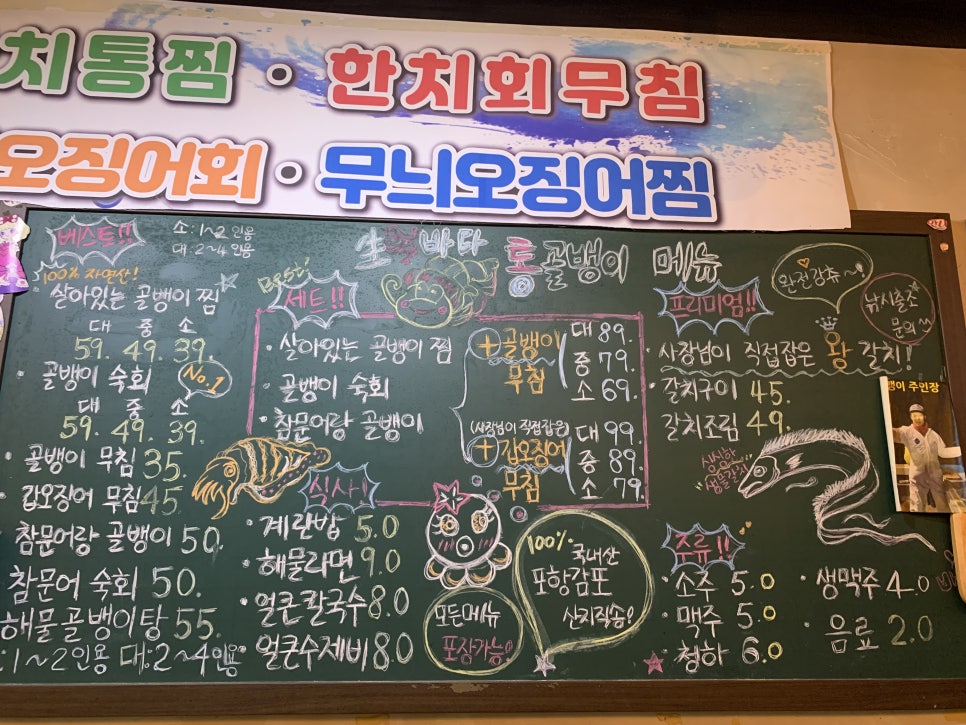 치통찜 · 한치회무침
오징어회 · 무늬오징어찜
베스트!!
소:1~2인용
대:2~4인용
100% 자연산!
살아있는 골뱅이 찜
대 중 소
59. 49. 39.
골뱅이 숙회 No.1
대 중 소
59. 49. 39.
· 골뱅이 무침 35.
· 갑오징어 무침 45.
참문어랑 골뱅이 50.
참문어 숙회 50.
해물골뱅이탕 55.
:1~2인용 대:2~4인용
바다 통골뱅이 메뉴
Best!
세트!!
· 살아있는 골뱅이 찜
· 골뱅이 숙회
· 참문어랑 골뱅이
+골뱅이 무침
대 89.
중 79.
소 69.
(사장님이 직접잡은)
+갑오징어 무침
대 99.
중 89.
소 79.
식사!
· 계란밥 5.0
· 해물라면 9.0
· 얼큰칼국수 8.0
· 얼큰수제비 8.0
모든메뉴
포장가능!
100% 국내산
포항감포
산지직송!
프리미엄!!
완전강추~
낚시출조
문의
· 사장님이 직접잡은 왕 갈치!
· 갈치구이 45.
· 갈치조림 49.
싱싱한
생물갈치
뱅이 주인장
주류!!
· 소주 5.0
· 맥주 5.0
· 청하 6.0
· 생맥주 4.0
· 음료 2.0